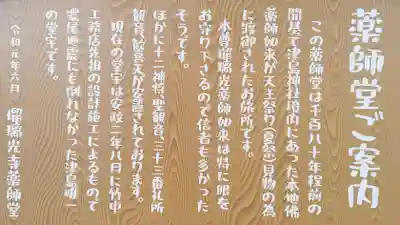 薬師堂ご案内
この薬師堂は千百八十年程前の
開基で津島神社境内にあった本地佛
薬師如来が天王祭り(夏祭)見物の為
に渡御されたお旅所です。
本尊瑠璃光薬師如来は特に眼を
お守り下さるので信者も多かった
そうです。
ほかに十二神将、聖観音、三十三番札所
観音、毘沙門天が安置されております。
現在の堂宇は安政二年八月に竹中
工務店先祖の設計施工によるもので
濃尾震災にも倒れなかった津島唯一
の堂宇です。
令和元年六月 瑠璃光寺薬師堂